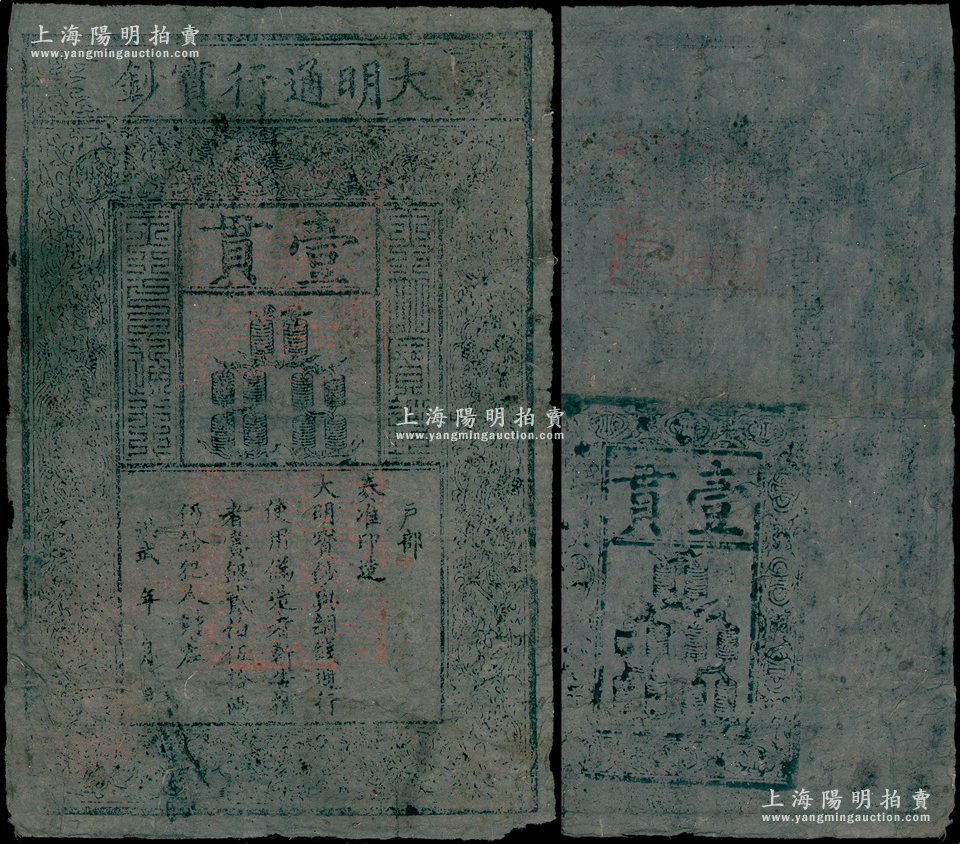 上海陽明拍賣
www.yangmingauction.com
大明通行寶鈔
壹貫
戶部
奏准印造
大明寶鈔與銅錢通行
使用偽造者斬告捕
者賞銀貳佰伍拾兩
仍給犯人財產
洪武 年 月 日
上海陽明拍賣
www.yangmingauction.com
壹貫
上海陽明拍賣
www.yangmingauction.com